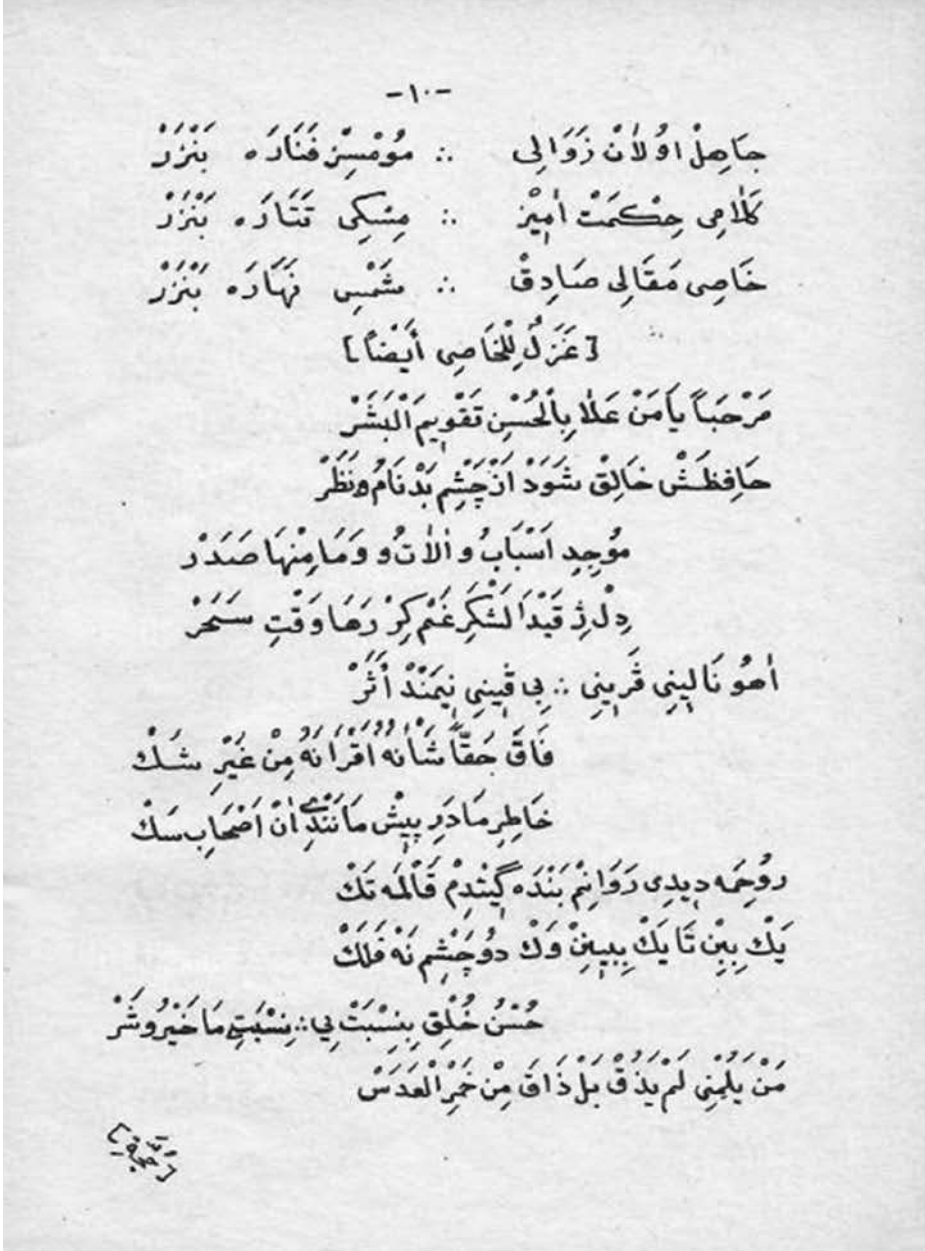 -١٠-
حَاصِلْ اوُلَانْ زَوَالِى ∴ مُومْسِزْ فَنَارَه بَنْزَرْ
كَلَامِى حِكْمَتْ اٰمِيْز ∴ مِسْكِى تَتَارَه بَنْزَرْ
خَاصِى مَقَالِى صَادِقْ ∴ شَمْسِ نَهَارَه بَنْزَرْ
[غَزَلٌ لِلْخَاصِى أَيْضاً]
مَرْحَباً يَا مَنْ عَلَا بِالْحُسْنِ تَقْوِيمَ الْبَشَرْ
حَافِظَشْ خَالِقْ شَوَدْ اَزْ چَشْمِ بَدْنَامُ ونَظَرْ
مُوجِدِ اَسْبَابُ و اٰلَاتُ و وَمَا مِنْهَا صَدَرْ
دِلْ ژِ قَيْدَا لَشْكَرِ غَمْ كِرْ رَهَا وَقْتِ سَحَرْ
اٰهُو نَالِينِى قَرِينِى ∴ بِى قِينِى نِيمَنْدْ أَثَرْ
فَاقَ حَقّاً شَأْنُهُ اَقْرَانَهُ مِنْ غَيْرِ شَكْ
خَاطِرِ مَا دَرِ پِيشْ مَانَنْدِ اٰنْ اَصْحَابِ سَكْ
رُوحِمَه دِيدِى رَوَانِمْ بَنْدَه گِيتْدِمْ قَالْمَه تَكْ
يَكْ بِبِينِ تَا يَكْ بِبِينِنْ وَكْ دُو چَشْمِ نَهْ فَلَكْ
حُسْنُ خُلْقِ بِنِسْبَتْ بِي ∴ نِسْبَتِ مَا خَيْرُ وشَرْ
مَنْ يَلُمْنِى لَمْ يَذُقْ بَلْ ذَاقَ مِنْ خَمْرِ الْعَدَسْ